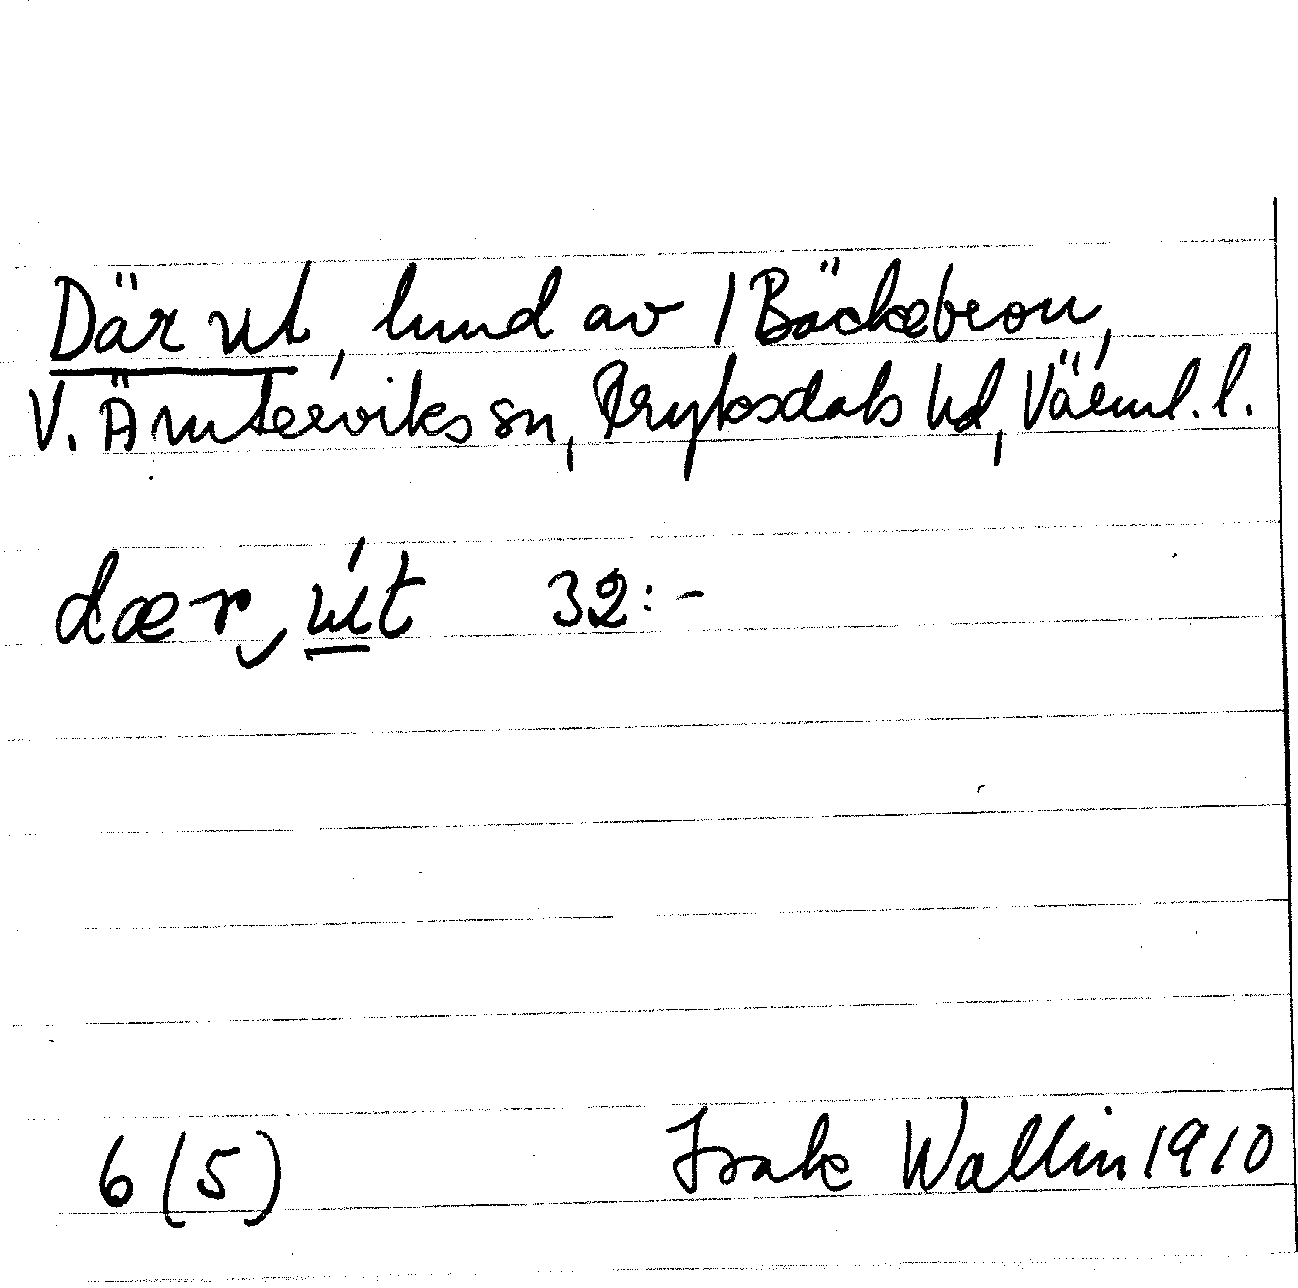 Där ut, lund av 1 Bäckebron,
V. Ämterviks sn, Fryksdals hd, Värml. l.
dær, út 32:-
6 (5) Isak Wallin 1910